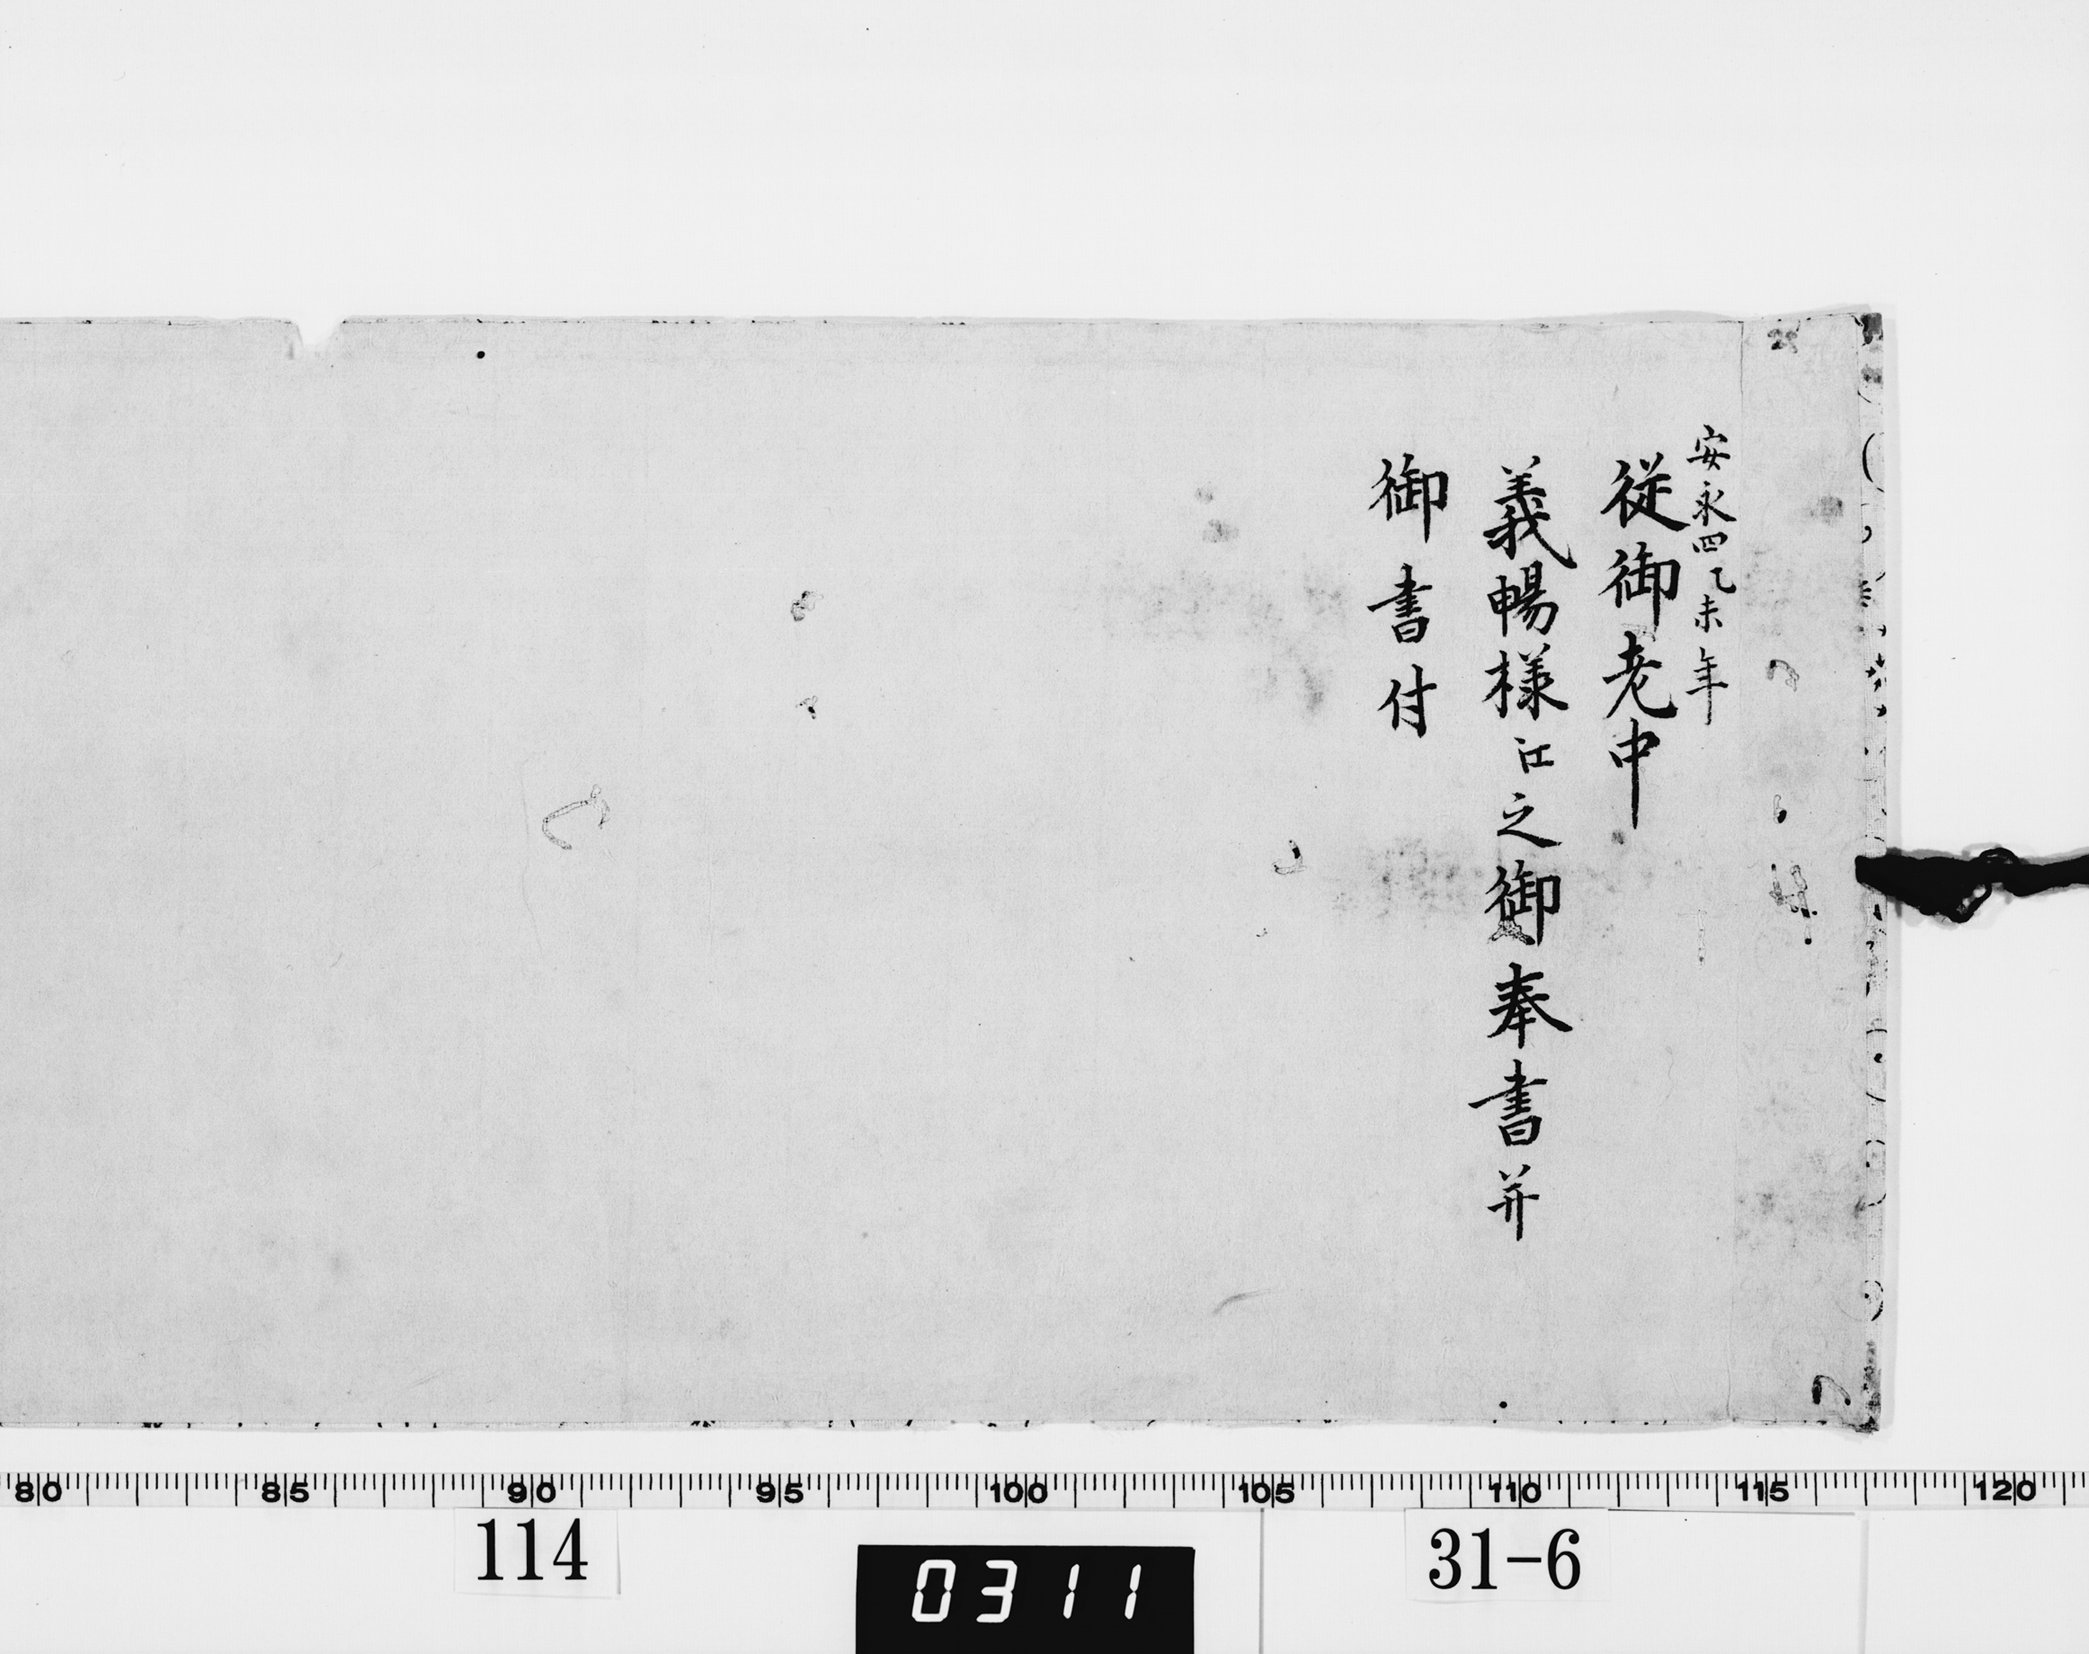 安永四乙未年
従御老中
義暢様江之御奉書并
御書付
80 85 90 95 100 105 110 115 120
114
0311
31-6